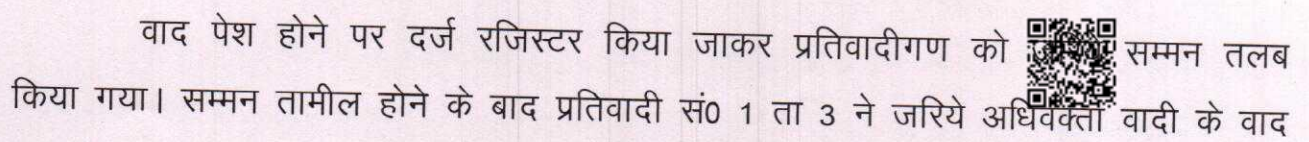 वाद पेश होने पर दर्ज रजिस्टर किया जाकर प्रतिवादीगण को सम्मन तलब
किया गया। सम्मन तामील होने के बाद प्रतिवादी सं0 1 ता 3 ने जरिये अधिवक्ता वादी के वाद